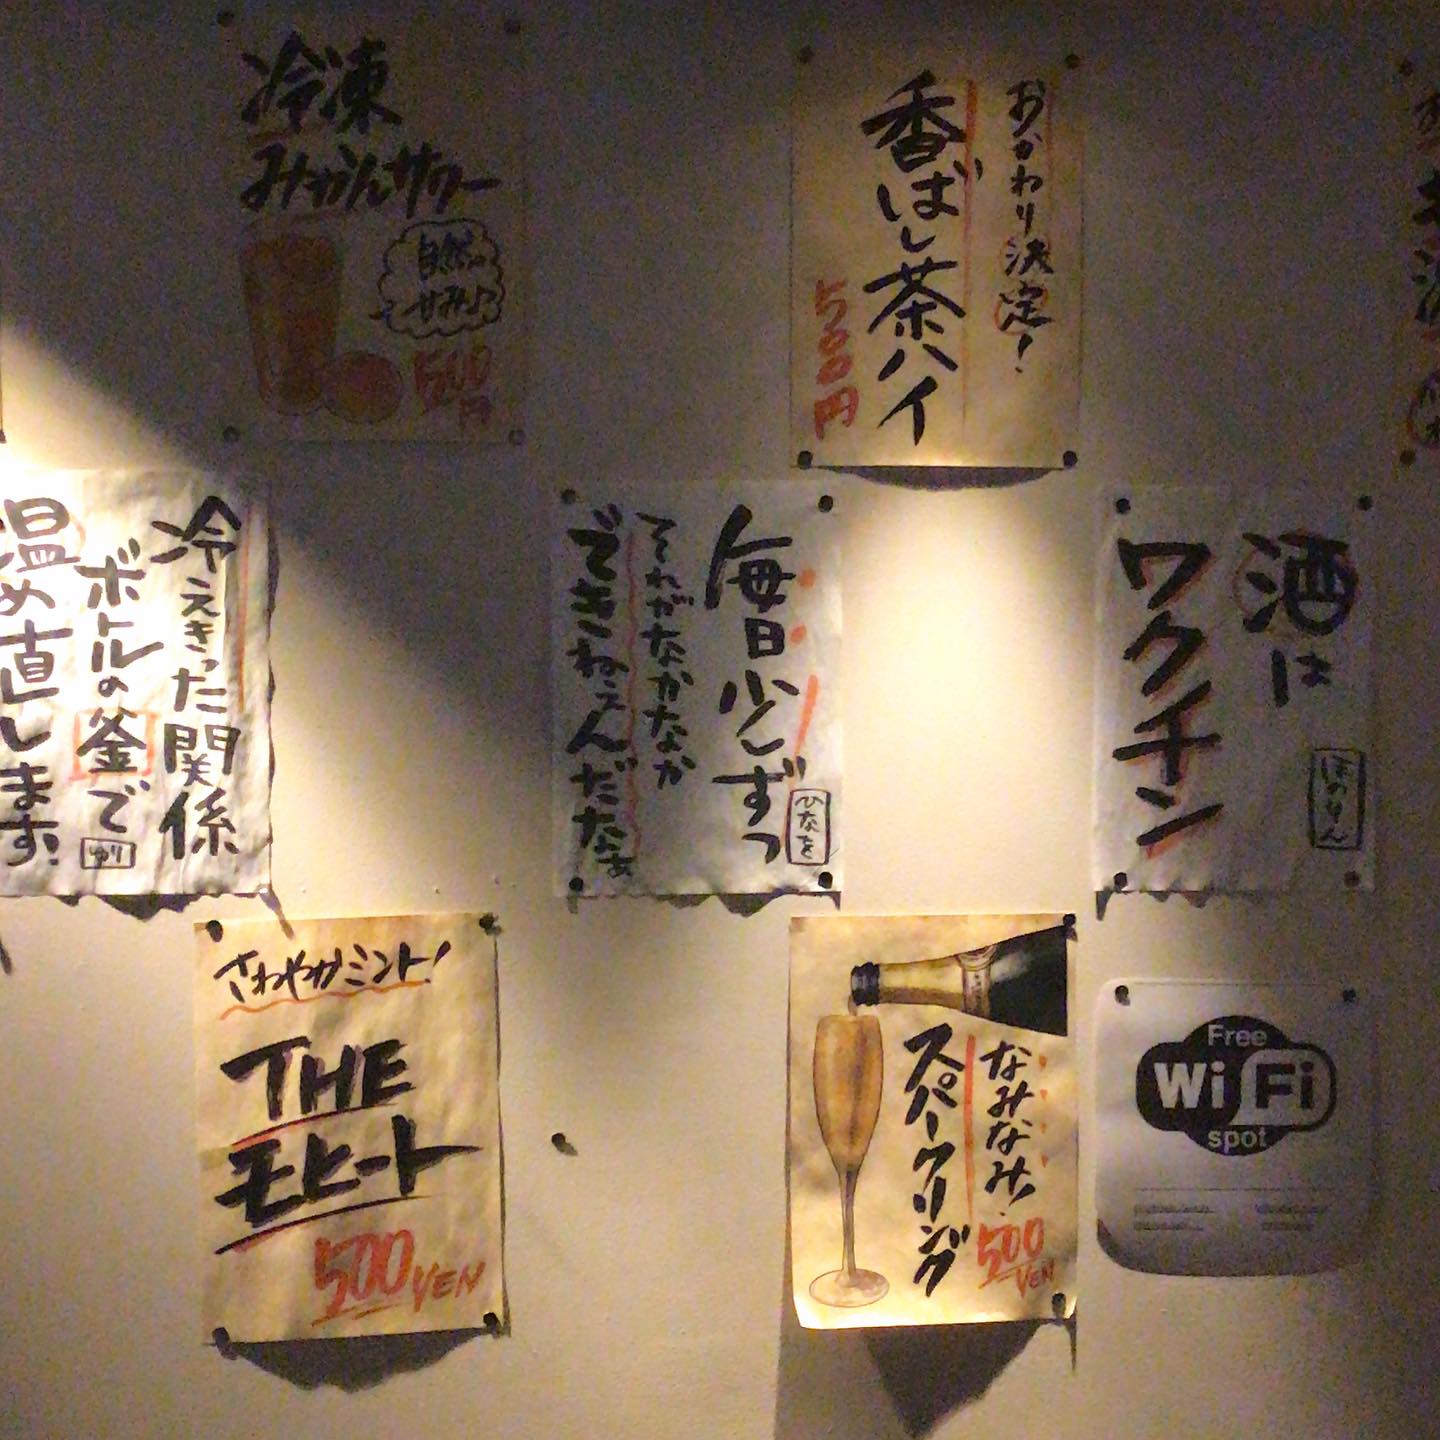 冷凍
みかんサワー
自然の
甘み♪
500
円
おかわり決定!
香ばし茶ハイ
500円
冷えきった関係
ボトルの釜で
温め直します!
ゆり
毎日少しずつ
それがなかなか
できねぇんだなぁ
ひなを
酒は
ワクチン
ほのりん
さわやかミント!
THE
モヒート
500YEN
なみなみ!
スパークリング
500
YEN
Free
Wi Fi
spot